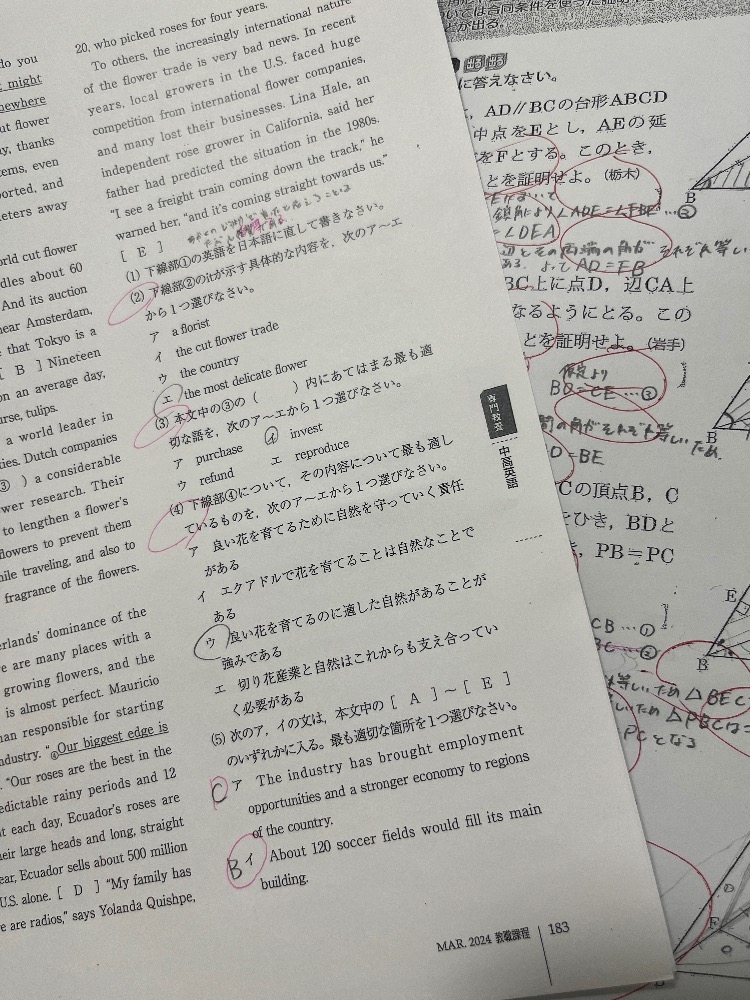 do you
might
mewhere
cut flower
y, thanks
tems, even
ported, and
eters away
orld cut flower
dles about 60
And its auction
near Amsterdam,
that Tokyo is a
[ B ] Nineteen
on an average day,
urse, tulips.
a world leader in
ties. Dutch companies
③ ) a considerable
wer research. Their
to lengthen a flower's
flowers to prevent them
hile traveling, and also to
fragrance of the flowers.
erlands' dominance of the
e are many places with a
growing flowers, and the
is almost perfect. Mauricio
man responsible for starting
ndustry. "④Our biggest edge is
"Our roses are the best in the
edictable rainy periods and 12
t each day, Ecuador's roses are
eir large heads and long, straight
ear, Ecuador sells about 500 million
U.S. alone. [ D ] "My family has
e are radios," says Yolanda Quishpe,
20, who picked roses for four years.
To others, the increasingly international nature
of the flower trade is very bad news. In recent
years, local growers in the U.S. faced huge
competition from international flower companies,
and many lost their businesses. Lina Hale, an
independent rose grower in California, said her
father had predicted the situation in the 1980s.
"I see a freight train coming down the track," he
warned her, "and it's coming straight towards us."
[ E ]
(1) 下線部①の英語を日本語に直して書きなさい。
(2) 下線部②のitが示す具体的な内容を、次のア〜エ
から1つ選びなさい。
ア a florist
イ the cut flower trade
ウ the country
エ the most delicate flower
(3) 本文中の③の ( ) 内にあてはまる最も適
切な語を、次のア〜エから1つ選びなさい。
ア purchase イ invest
ウ refund エ reproduce
(4) 下線部④について、その内容について最も適し
ているものを、次のア〜エから1つ選びなさい。
ア 良い花を育てるために自然を守っていく責任
がある
イ エクアドルで花を育てることは自然なことで
ある
ウ 良い花を育てるのに適した自然があることが
強みである
エ 切り花産業と自然はこれからも支え合ってい
く必要がある
(5) 次のア、イの文は、本文中の [ A ] 〜 [ E ]
のいずれかに入る。最も適切な箇所を1つ選びなさい。
C ア The industry has brought employment
opportunities and a stronger economy to regions
of the country.
B イ About 120 soccer fields would fill its main
building.
専門教養
中高英語
MAR. 2024 教職課程 183
いては合同条件を使った証明
が出る。
に答えなさい。
AD∥BCの台形ABCD
中点をEとし、AEの延
をFとする。このとき、
とを証明せよ。(栃木)
錯角より∠ADE=∠FBE…②
=∠DEA
辺とその両端の角が それぞれ等しい
よって AD=FB
BC上に点D, 辺CA上
なるようにとる。この
とを証明せよ。(岩手)
仮定より
BD=CE…③
間の角がそれぞれ等しいため
D=BE
Cの頂点B, C
をひき, BDと
PB=PC
CB…①
②
等しいため △BEC
しいため △PBCは=
PCとなる
B
B
E
B